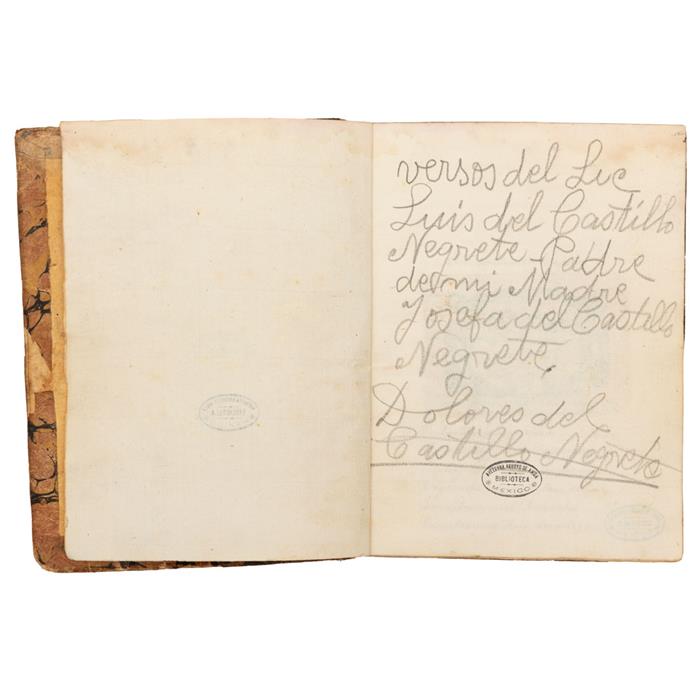 versos del Lic
Luis del Castillo
Negrete Padre
de mi Madre
Josefa del Castillo
Negrete
Dolores del
Castillo Negrete
BIBLIOTECA
MEXICO